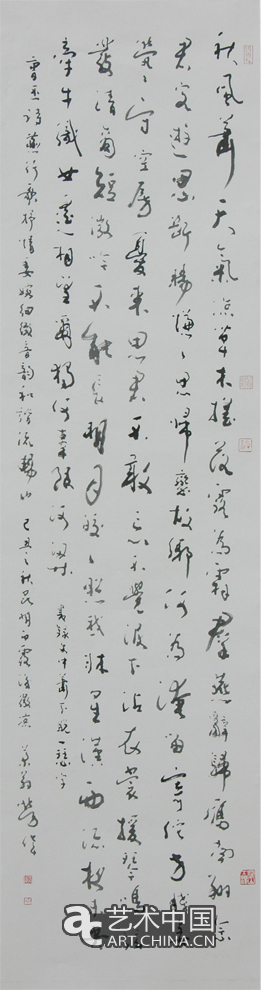 秋風蕭天氣涼草木搖落露為霜羣燕辭歸雁南翔念
君客遊思斷腸慊〻思歸戀故鄉何為淹留寄佗方賤妾
煢〻守空房憂來思君不敢忘不覺淚下沾衣裳援琴鳴弦
發清商短微吟不能長明月皎〻照我牀星漢西流夜未央
牽牛織女遙相望爾獨何辜限河梁
錄文中蕭下脫一瑟字
曹丕詩燕行歌抒情委婉細微音韻和諧流暢也 己丑之秋昆明
艺术中国
ART.CHINA.CN